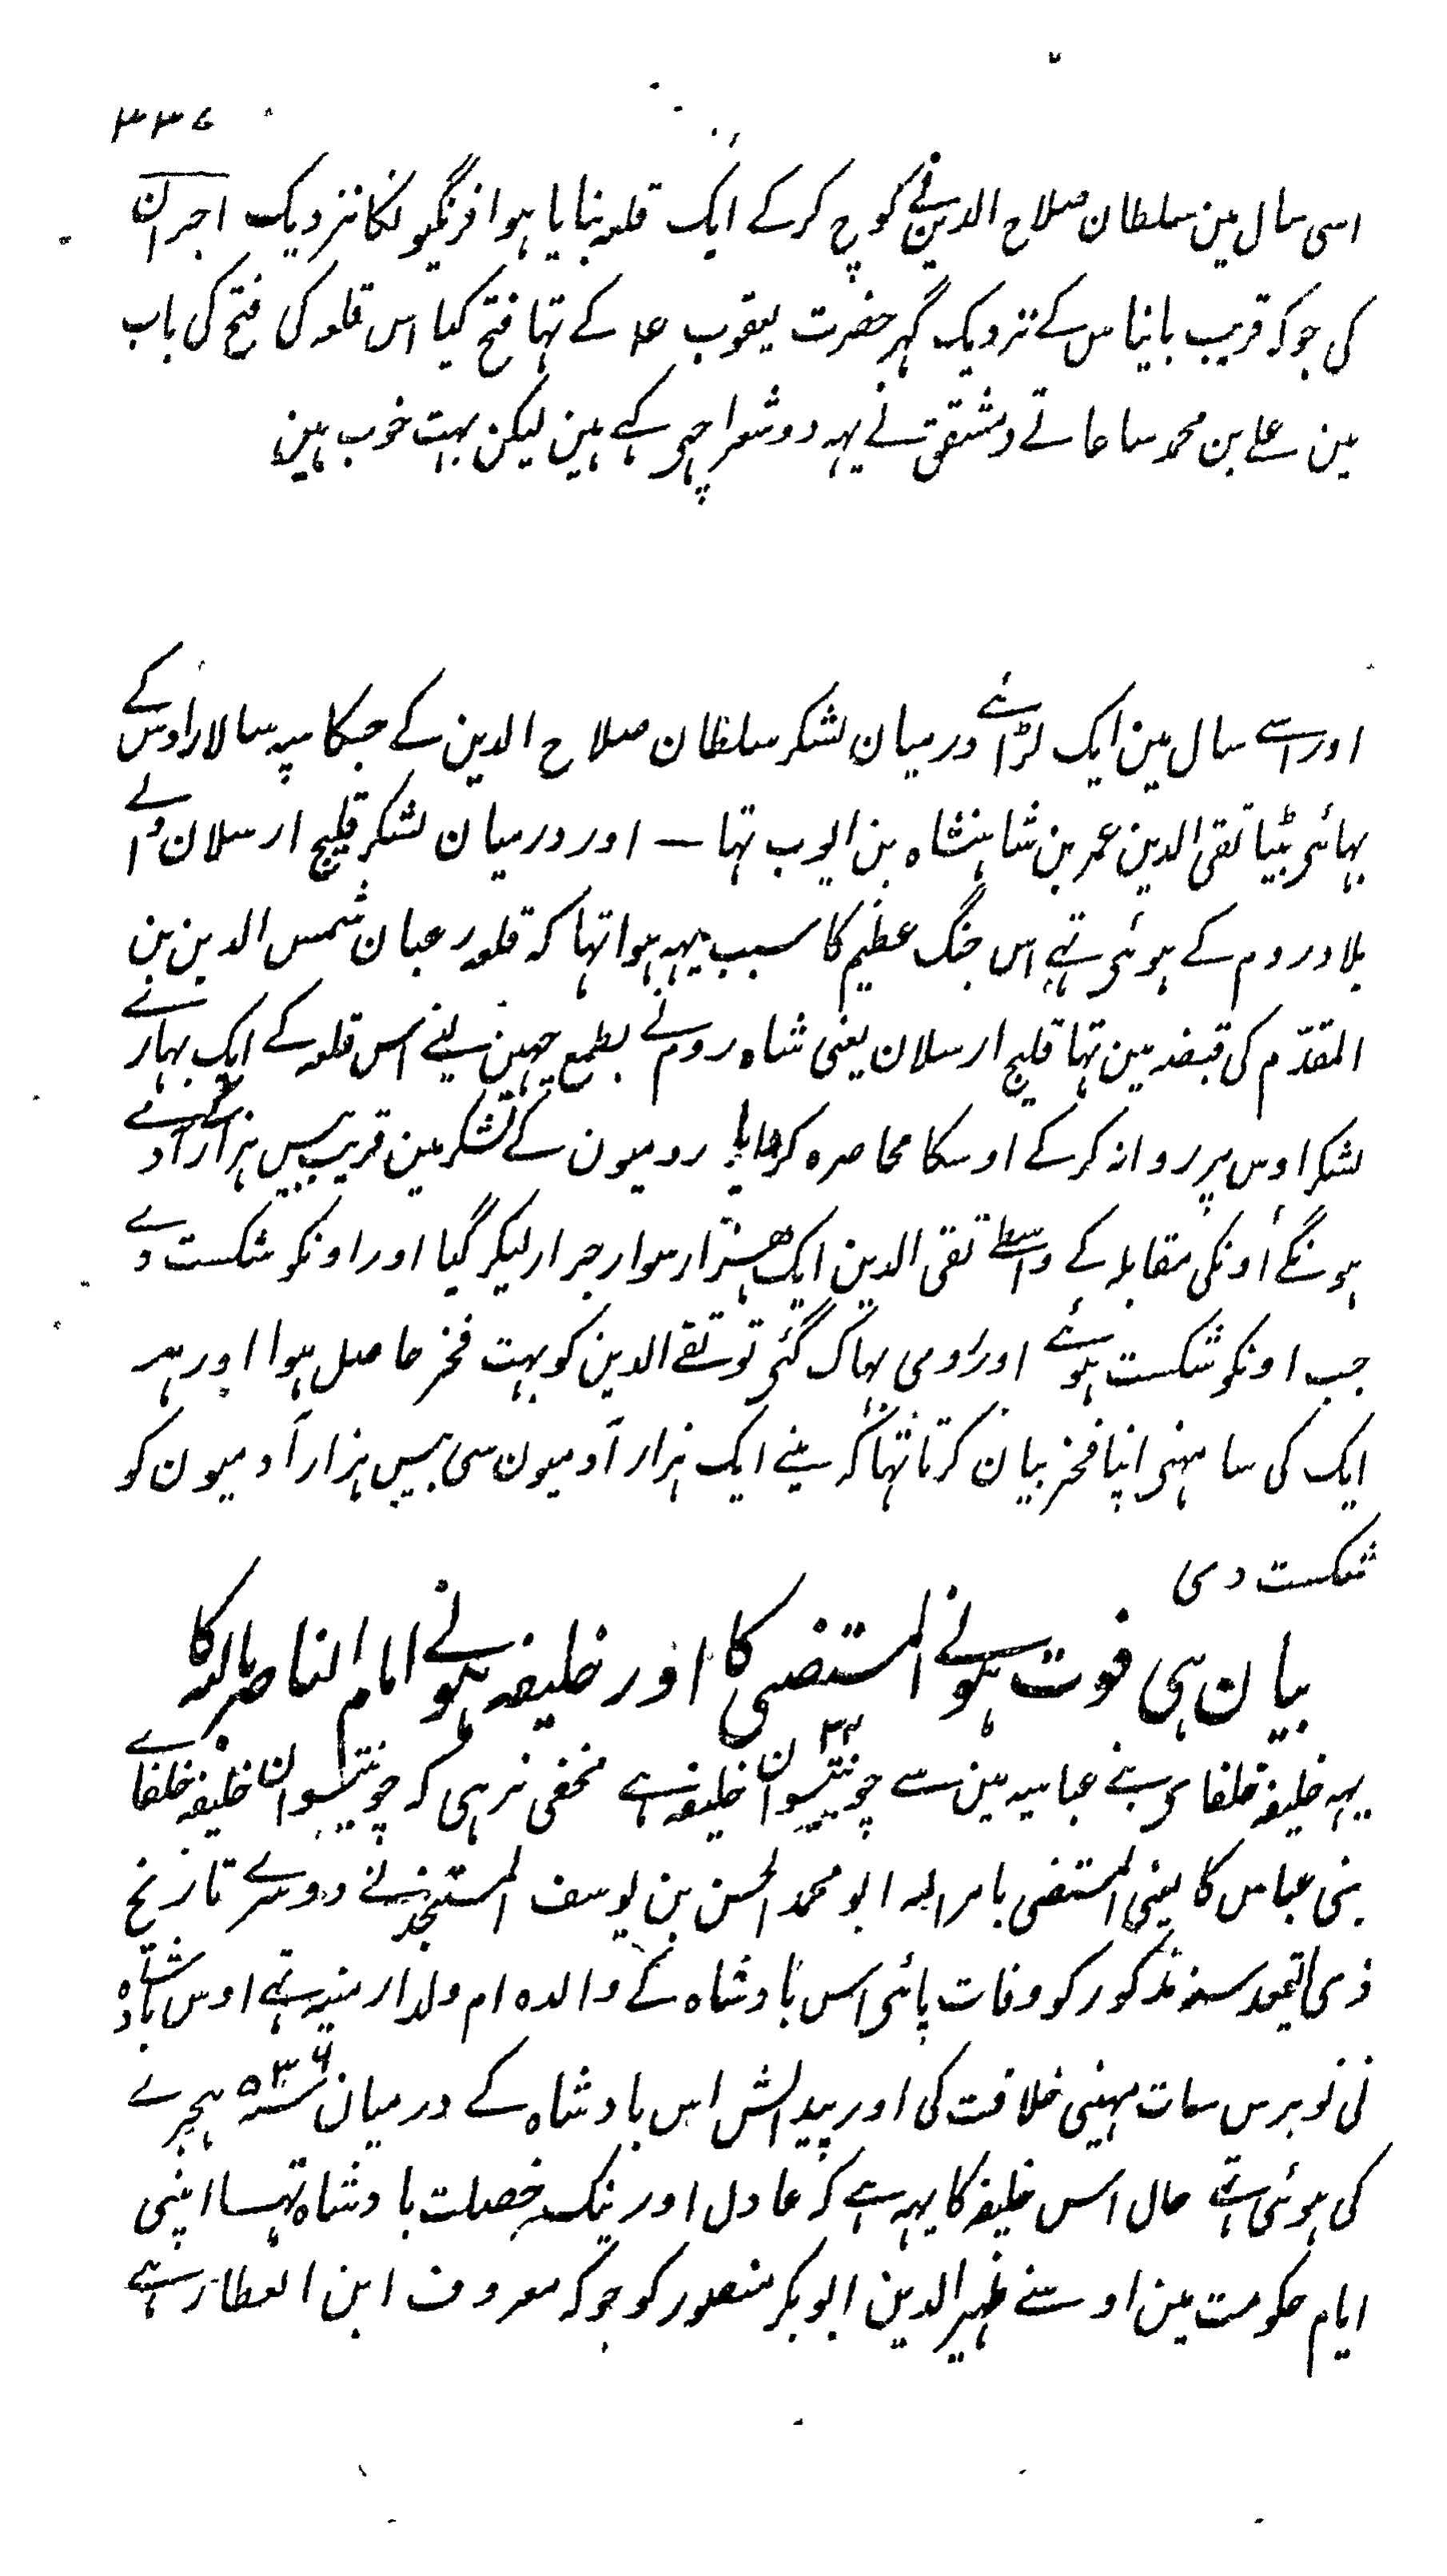 ۳۳۷
اسی سال مین سلطان صلاح الدین نے کوچ کرکے ایک قلعہ بنایا ہوا فرنگیونکا نزدیک احران
کی جو کہ قریب بانیاس کے نزدیک گہر حضرت یعقوب ع۴ کے تہا فتح کیا اس قلعہ کی فتح کی باب
مین علے بن محمد ساعاتے دمشقی نے یہہ دو شعر اچہی کہے ہین لیکن بہت خوب ہین
اور اسے سال مین ایک لڑائے درمیان لشکر سلطان صلاح الدین کے جسکا سپہ سالار اوس کے
بہائی بیٹا تقی الدین عمر بن شاہنشاہ بن ایوب تہا — اور درمیان لشکر قلیج ارسلان والے
بلاد روم کے ہوئی تہے اس جنگ عظیم کا سبب یہہ ہوا تہا کہ قلعہ رعبان شمس الدین بن
المقدّم کی قبضہ مین تہا قلیج ارسلان یعنی شاہ روم نے بطمع چہین لینے اس قلعہ کے ایک بہارے
لشکر اوس پر روانہ کرکے اوسکا محاصرہ کروایا رومیون کے لشکر مین قریب بیس ہزار کے آدمے
ہونگے اُونکی مقابلہ کے واسطے تقی الدین ایک ہزار سوار جرار لیکر گیا اور اونکو شکست دے
جب اونکو شکست ہوئے اور رومی بہاگ گئی تو تقے الدین کو بہت فخر حاصل ہوا اور ہر
ایک کی سامہنی اپنا فخر بیان کرتا تہا کہ مینے ایک ہزار آدمیون سی بیس ہزار آدمیون کو
شکست دی
بیان ہی فوت ہونے المستضی کا اور خلیفہ ہونے امام الناصر بالله کا
یہہ خلیفہ خلفای بنے عباسیہ مین سے چونتیسوان ۳۴ خلیفہ ہے مخفی نرہی کہ چونتیسوان خلیفہ خلفاے
بنی عباس کا یعنی المستضی بامر الله ابو محمد الحسن بن یوسف المستنجد نے دوسرے تاریخ
ذی القعد سنہ مذکور کو وفات پائی اس بادشاہ کے والدہ ام ولد ارمنیہ تہے اوس بادشاہ
نی نو برس سات مہینی خلافت کی اور پیدایش اس بادشاہ کے درمیان ۵۳۶ سنہ ہجرے
کی ہوئی تہے حال اس خلیفہ کا یہہ ہے کہ عادل اور نیک خصلت بادشاہ تہا اپنی
ایام حکومت مین اوسنے ظہیر الدین ابوبکر منصور کو جو کہ معروف ابن العطار ہے